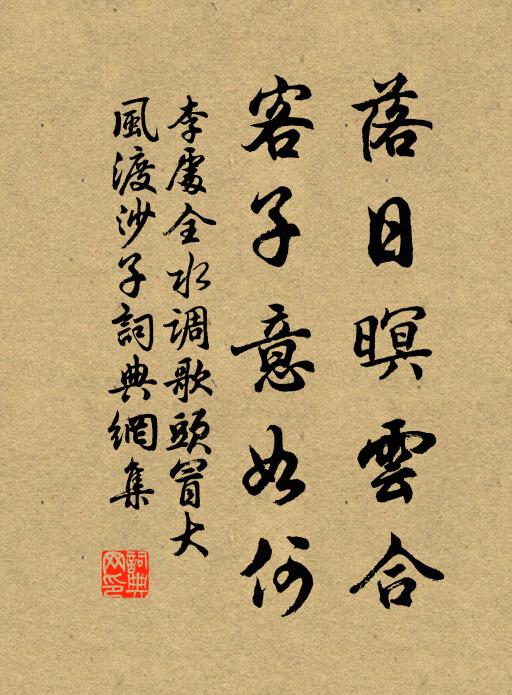 落日暝雲合
客子意如何
李處全水調歌頭冒大
風渡沙子詞典網集
詞典網印